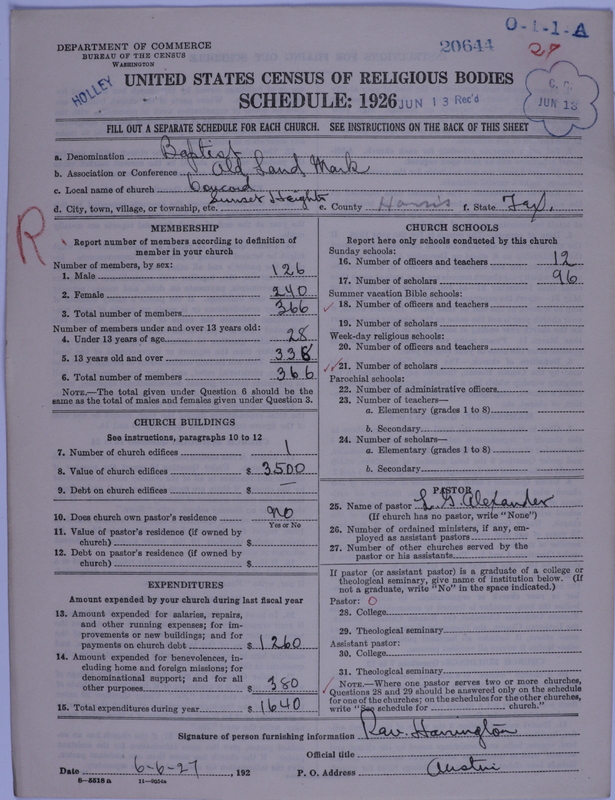 O-1-1-A
20644
28
DEPARTMENT OF COMMERCE
BUREAU OF THE CENSUS
WASHINGTON
HOLLEY
UNITED STATES CENSUS OF RELIGIOUS BODIES
SCHEDULE: 1926
JUN 13 Rec'd
C. C.
JUN 13
FILL OUT A SEPARATE SCHEDULE FOR EACH CHURCH. SEE INSTRUCTIONS ON THE BACK OF THIS SHEET
a. Denomination Baptist
b. Association or Conference Old Land Mark
c. Local name of church Concord
d. City, town, village, or township, etc. Sunset Heights e. County Harris f. State Tex.
R
MEMBERSHIP
Report number of members according to definition of member in your church
Number of members, by sex:
1. Male 126
2. Female 240
3. Total number of members 366
Number of members under and over 13 years old:
4. Under 13 years of age 28
5. 13 years old and over 338
6. Total number of members 366
NOTE.—The total given under Question 6 should be the same as the total of males and females given under Question 3.
CHURCH BUILDINGS
See instructions, paragraphs 10 to 12
7. Number of church edifices 1
8. Value of church edifices $ 3500
9. Debt on church edifices $ —
10. Does church own pastor's residence No
Yes or No
11. Value of pastor's residence (if owned by church) $
12. Debt on pastor's residence (if owned by church) $
EXPENDITURES
Amount expended by your church during last fiscal year
13. Amount expended for salaries, repairs, and other running expenses; for improvements or new buildings; and for payments on church debt $ 1260
14. Amount expended for benevolences, including home and foreign missions; for denominational support; and for all other purposes $ 380
15. Total expenditures during year $ 1640
CHURCH SCHOOLS
Report here only schools conducted by this church
Sunday schools:
16. Number of officers and teachers 12
17. Number of scholars 96
Summer vacation Bible schools:
18. Number of officers and teachers
19. Number of scholars
Week-day religious schools:
20. Number of officers and teachers
21. Number of scholars
Parochial schools:
22. Number of administrative officers
23. Number of teachers—
a. Elementary (grades 1 to 8)
b. Secondary
24. Number of scholars—
a. Elementary (grades 1 to 8)
b. Secondary
PASTOR
25. Name of pastor L. G. Alexander
(If church has no pastor, write "None")
26. Number of ordained ministers, if any, employed as assistant pastors
27. Number of other churches served by the pastor or his assistants
If pastor (or assistant pastor) is a graduate of a college or theological seminary, give name of institution below. (If not a graduate, write "No" in the space indicated.)
Pastor: O
28. College
29. Theological seminary
Assistant pastor:
30. College
31. Theological seminary
NOTE.—Where one pastor serves two or more churches, Questions 28 and 29 should be answered only on the schedule for one of the churches; on the schedules for the other churches, write "See schedule for church."
Signature of person furnishing information Rav. Harrington
Official title
Date 6-6-27, 192 P. O. Address Austin
8-5518 a 11-9054a